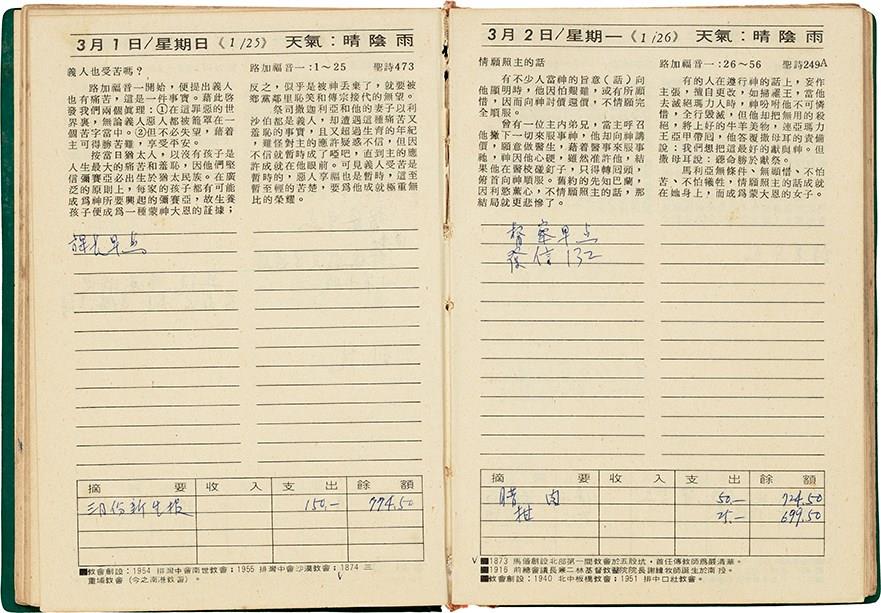 3月1日/星期日《1/25》 天氣：晴陰雨
義人也受苦嗎？
路加福音一開始，便提出義人
也有痛苦，這是一件事實。藉此啓
發我們兩個眞理：①在這罪惡的世
界裏，無論義人惡人都被籠罩在一
個苦字當中。②但不必失望，藉着
主可得勝苦難，享受平安。
按當日猶太人，以沒有孩子是
人生最大的痛苦和羞恥，因他們堅
信彌賽亞必出生於猶太民族。在廣
泛的原則上，每家的孩子都有可能
成爲神所要興起的彌賽亞，故生養
孩子便成爲一種蒙神大恩的証據；
路加福音一：1～25 聖詩473
反之，似乎是被神丟棄了，就要被
鄉黨鄰里恥笑和傳宗接代的無望。
祭司撒迦利亞和他的妻子以利
沙伯都是義人，却遭遇這種痛苦又
羞恥的事實，且又超過生育的年紀
課長早点
摘要 收入 支出 餘額
3月份新生报 150.— 774.50
■教會創設：1954 排灣中會南世教會；1955 排灣中會沙漠教會；1874 三
重埔教會（今之南港教會）。
3月2日/星期一《1/26》 天氣：晴陰雨
情願照主的話
有不少人當神的旨意（話）向
他顯明時，他因怕艱難，或有所顧
惜，因而向神討價還價，不情願完
全順服。
曾有一位主內弟兄，當主呼召
他撇下一切來服事神，他却向神講
價，願意做醫生，藉着醫事來服事
祂，神因他心硬，雖然准許他，結
果他在醫校碰釘子，只得轉回頭，
俯首向神順服。舊約的先知巴蘭，
因利慾薰心，不情願照主的話，那
結局就更悲慘了。
路加福音一：26～56 聖詩249A
有的人在遵行神的話上，妄作
主張，擅自更改，如掃羅王，當他
去滅絕瑪力人時，神吩咐他不可憐
惜，全行毀滅，但他却把無用的殺
絕，將上好的牛羊美物，連亞瑪力
王亞甲帶回，他在答覆撒母耳的責備
說：我們想把這最好的獻與神。但
撒母耳說：聽命勝於獻祭。
馬利亞無條件、無顧惜、不怕
苦、不怕犧牲，情願照主的話成就
在她身上，而成爲蒙大恩的女子。
督察早点
發信132
摘要 收入 支出 餘額
腊肉 50.— 724.50
柑 25.— 699.50
■1873 馬偕創設北部第一間教會於五股坑，首任傳教師爲嚴清華。
■1916 前總會議長兼二林基督教醫院院長謝緯牧師誕生於南投。
■教會創設：1940 北中板橋教會；1951 排中口社教會。